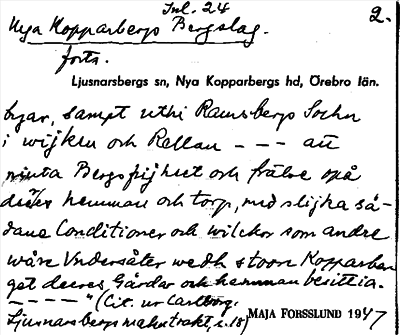 Inl. 24
2.
Nya Kopparbergs Bergslag.
forts.
Ljusnarsbergs sn, Nya Kopparbergs hd, Örebro län.
byar, sampt uthi Ramsbergs Sochn
i wijken och Rällan - - - att
niuta Bergzfrijheet och frälse opå
deres hemman och torp, med slijka så-
dane Conditioner och wilckor som andre
wåre Undersåter wedh stoora Kopparber
get deeres Gårdar och hemman besittia.
- - - - " (Cit. ur Carlborg:
Ljusnarsbergs malmtrakt, s. 18)
MAJA FORSSLUND 1947